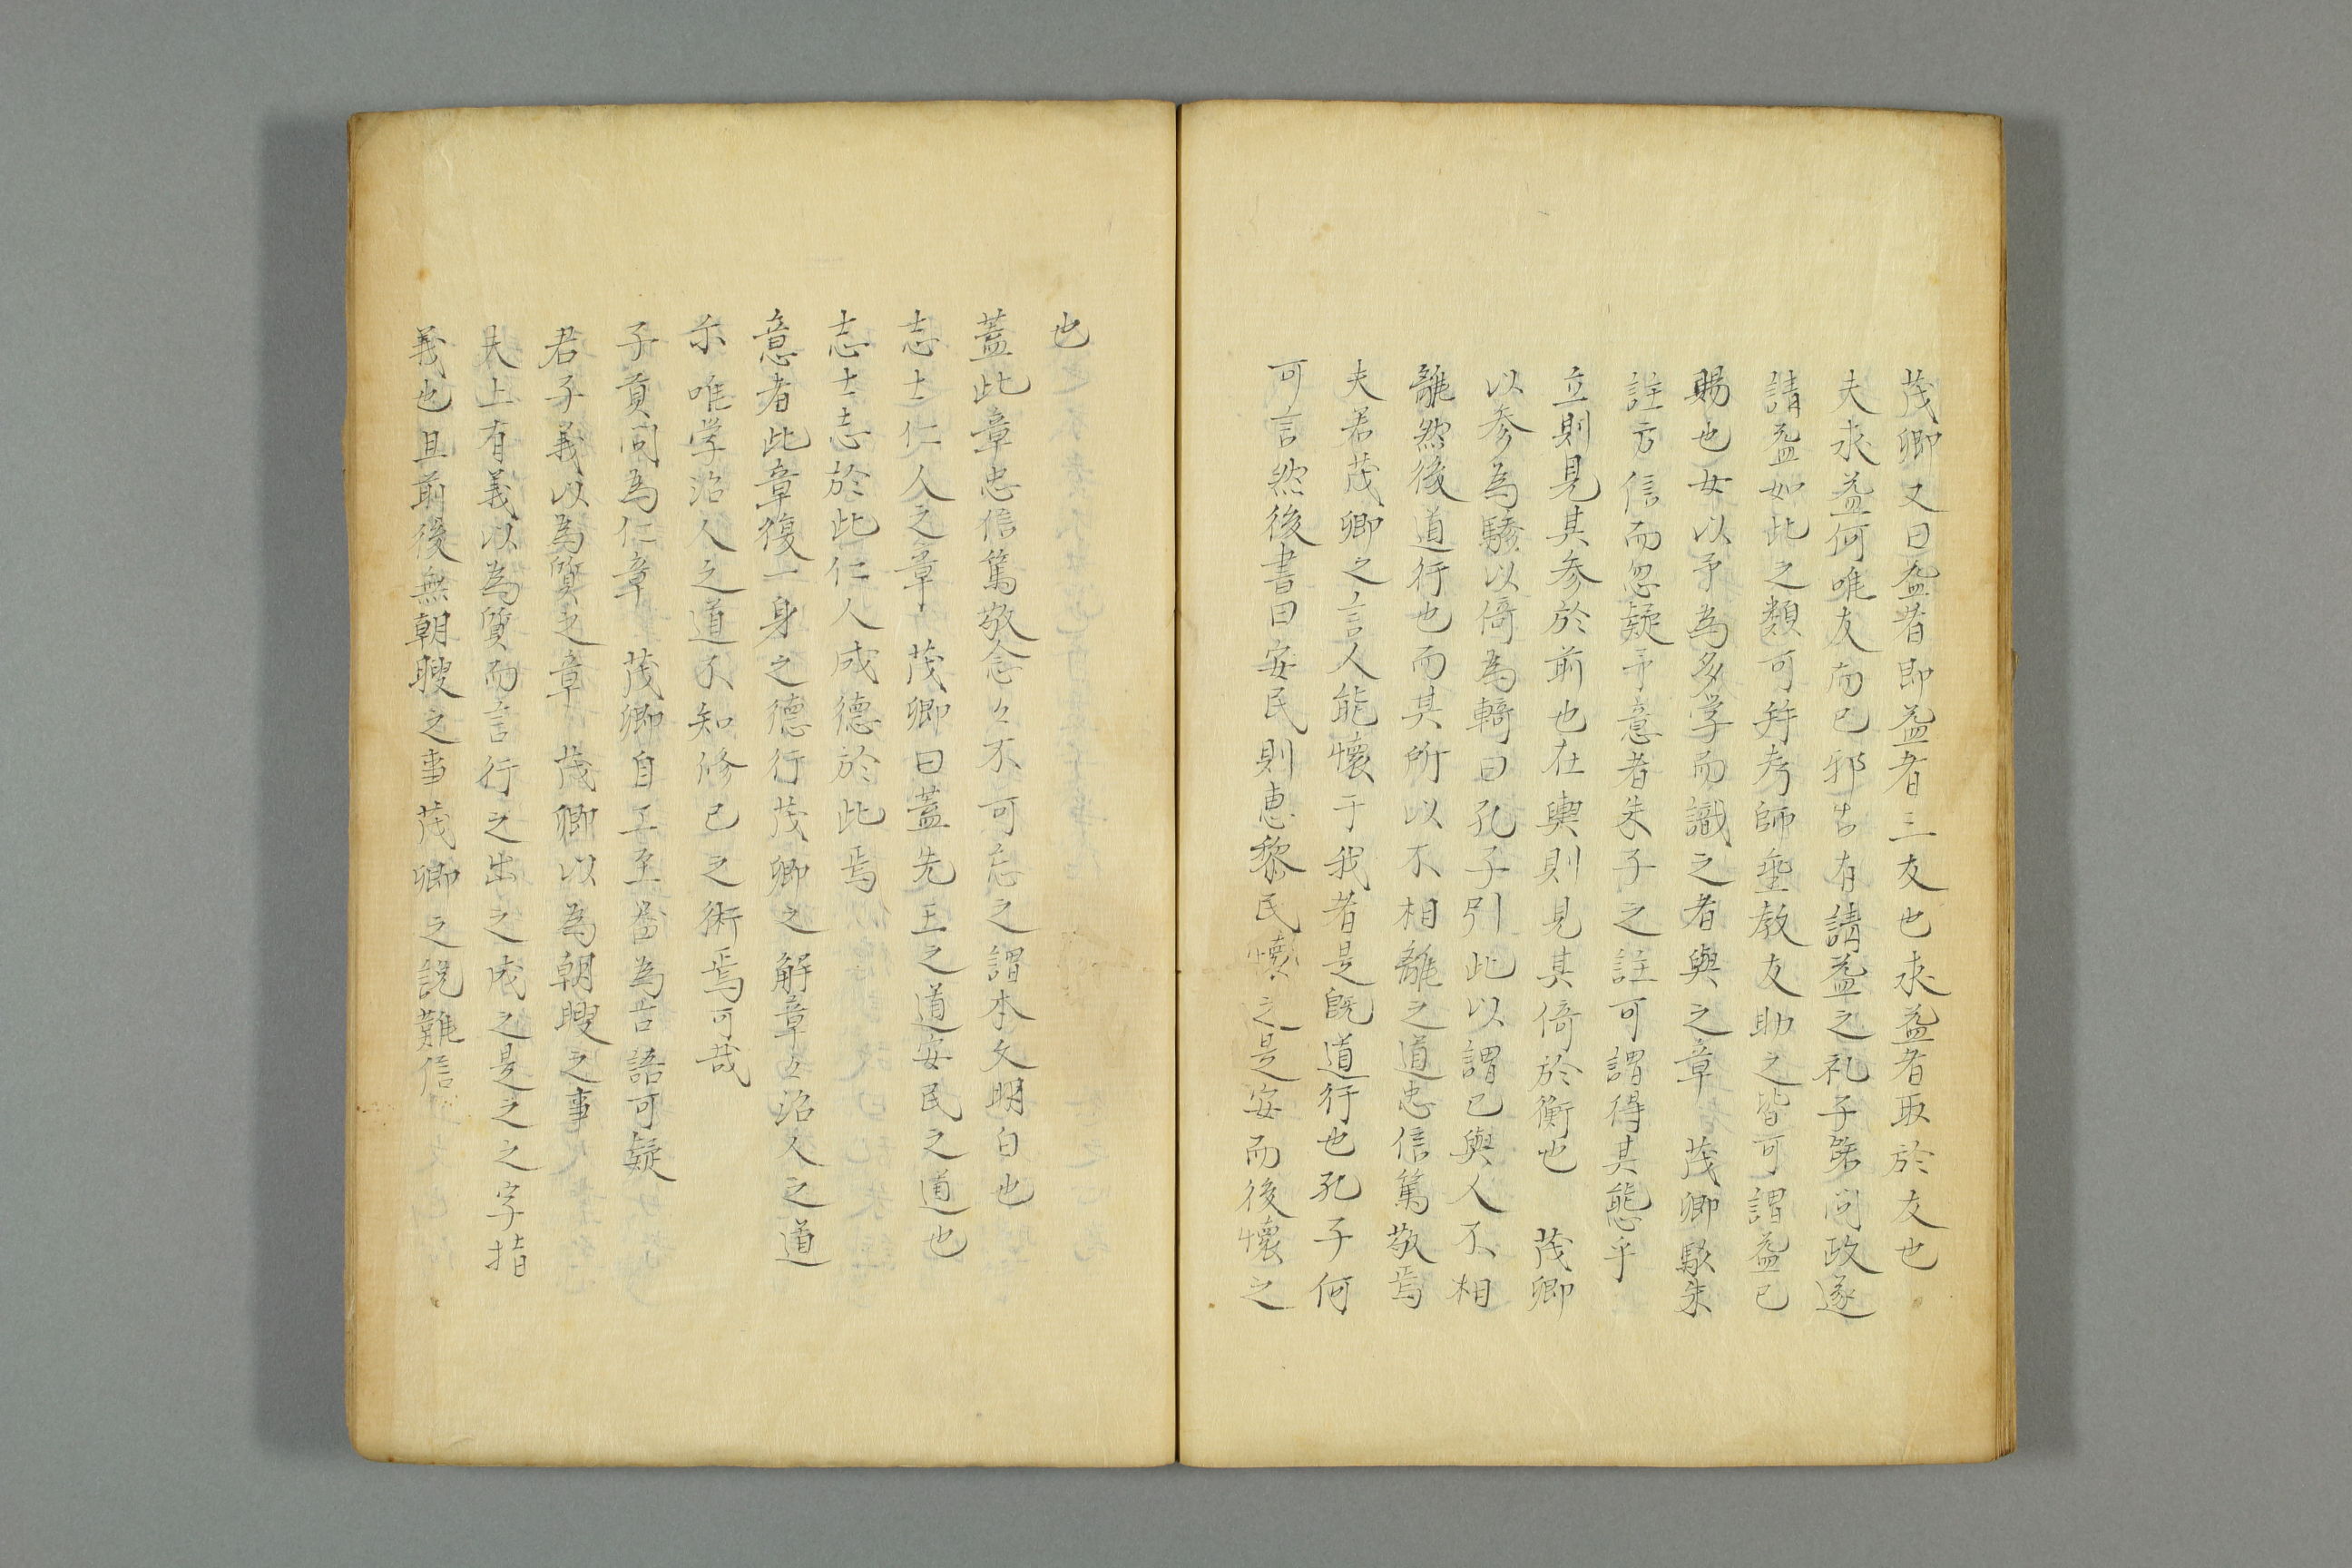 茂卿又曰益者即益者三友也求益者取於友也
夫求益何唯友而已邪古有請益之礼子第問政遂
請益如此之類可并考師垂教友助之皆可謂益已
賜也女以予為多学而識之者與之章　茂卿駁朱
註方信而忽疑予意者朱子之註可謂得其態乎
立則見其参於前也在輿則見其倚於衡也　茂卿
以参為驂以倚為輢曰孔子引此以謂已與人不相
離然後道行也而其所以不相離之道忠信篤敬焉
夫若茂卿之言人能懐于我者是既道行也孔子何
可言然後書曰安民則恵黎民懐之是安而後懐之
也
蓋此章忠信篤敬念々不可忘之謂本文明白也
志士仁人之章　茂卿曰蓋先王之道安民之道也
志士志於此仁人成德於此焉
意者此章復一身之德行茂卿之解章々治人之道
尓唯学治人之道不知修己之術焉可哉
子貢問為仁章　茂卿自工至當為古語可疑
君子義以為質之章　茂卿以為朝聘之事
夫上有義以為質而言行之出之成之是之之字指
義也且前後無朝聘之事茂卿之説難信